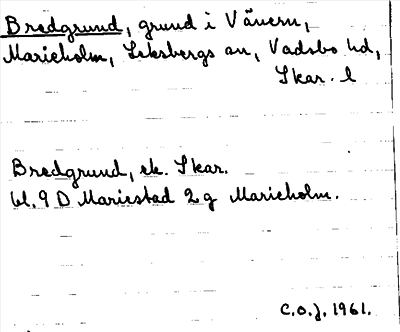 Bredgrund, grund i Vänern,
Marieholm, Leksbergs sn, Vadsbo hd,
Skar. l
Bredgrund, ek. Skar.
bl. 9 D Mariestad 2 g Marieholm.
C.O.J. 1961.